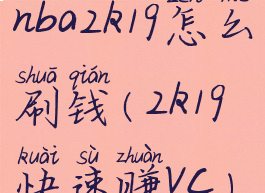 nba2k19怎么
shuā qián
刷钱(2k19
kuài sù zhuàn
快速赚VC)